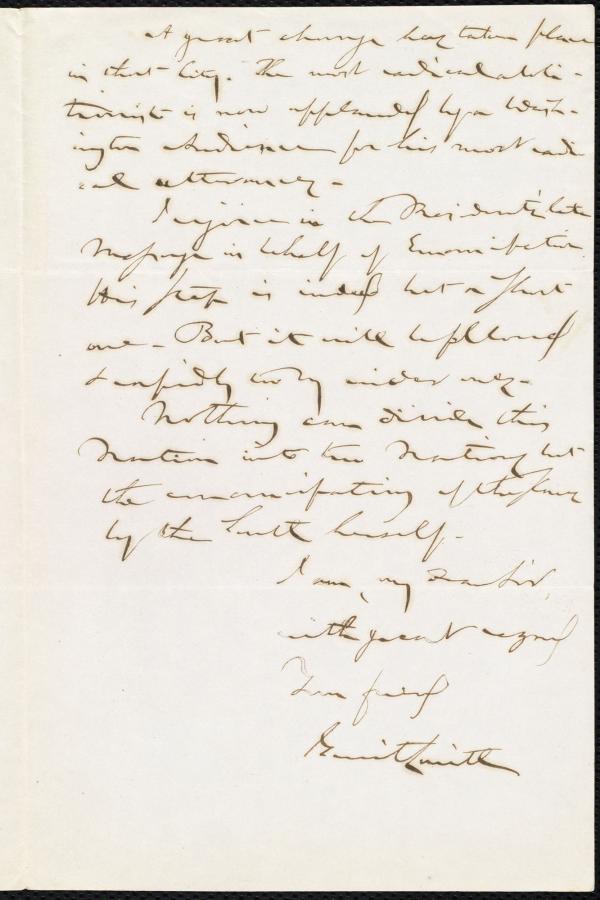 A great change has taken place
in that City. The most radical aboli-
tionist is now applauded by a Wash-
ington Audience for his most radi
cal utterances.
I rejoice in the President's late
Message in behalf of Emancipation.
This step is indeed but a short
one - But it will be followed
& rapidly too by wider ones.
Nothing can divide this
Nation into two Nations but
the emancipating of the slaves
by the South herself.
I am, my Dear Sir,
with great regard
Your friend
Gerrit Smith